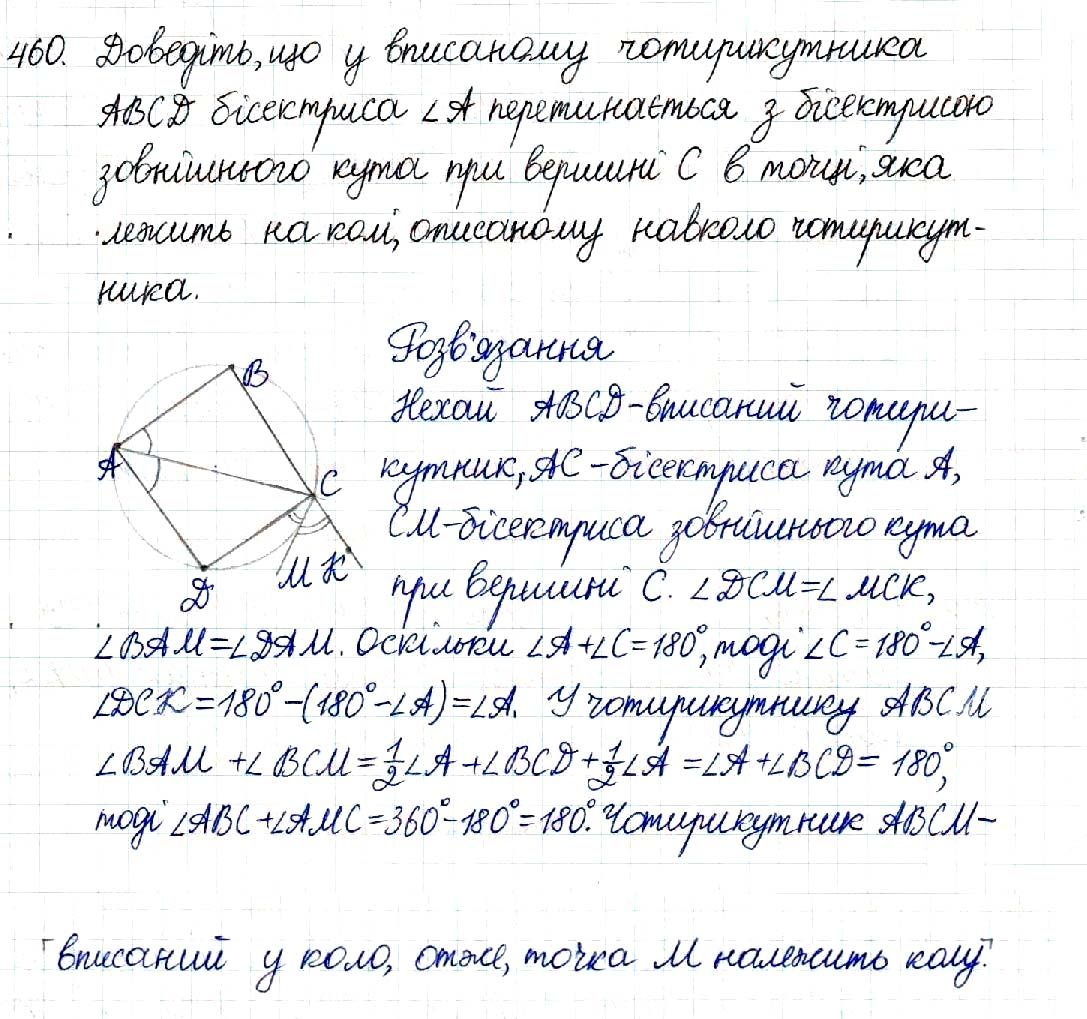 460. Доведіть, що у вписаному чотирикутника
ABCD бісектриса ∠A перетинається з бісектрисою
зовнішнього кута при вершині C в точці, яка
лежить на колі, описаному навколо чотирикут-
ника.
Розв'язання
Нехай ABCD - вписаний чотири-
кутник, AC - бісектриса кута A,
CM - бісектриса зовнішнього кута
при вершині C. ∠DCM = ∠MCK,
∠BAM = ∠DAM. Оскільки ∠A + ∠C = 180°, тоді ∠C = 180° - ∠A,
∠DCK = 180° - (180° - ∠A) = ∠A. У чотирикутнику ABCM
∠BAM + ∠BCM = 1/2∠A + ∠BCD + 1/2∠A = ∠A + ∠BCD = 180°,
тоді ∠ABC + ∠AMC = 360° - 180° = 180°. Чотирикутник ABCM -
вписаний у коло, отже, точка M належить колу.
B
A
C
M K
D